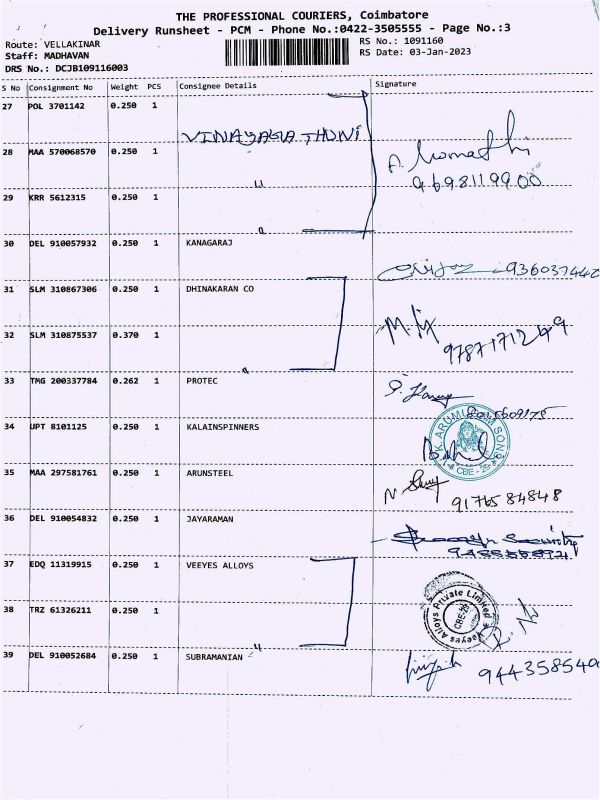 THE PROFESSIONAL COURIERS, Coimbatore
Delivery Runsheet - PCM - Phone No.:0422-3505555 - Page No.:3
Route: VELLAKINAR
Staff: MADHAVAN
DRS No.: DCJB109116003
RS No.: 1091160
RS Date: 03-Jan-2023
S No Consignment No Weight PCS Consignee Details Signature
27 POL 3701142 0.250 1
VINAYAGA
28 MAA 570068570 0.250 1
9698119900
29 KRR 5612315 0.250 1
30 DEL 910057932 0.250 1 KANAGARAJ
31 SLM 310867306 0.250 1 DHINAKARAN CO
32 SLM 310875537 0.370 1
33 TMG 200337784 0.262 1 PROTEC
34 UPT 8101125 0.250 1 KALAINSPINNERS
CBE - 29
35 MAA 297581761 0.250 1 ARUNSTEEL
9176584848
36 DEL 910054832 0.250 1 JAYARAMAN
37 EDQ 11319915 0.250 1 VEEYES ALLOYS
38 TRZ 61326211 0.250 1
Veeyes Alloys Private Limited
CBE-29
39 DEL 910052684 0.250 1 SUBRAMANIAN